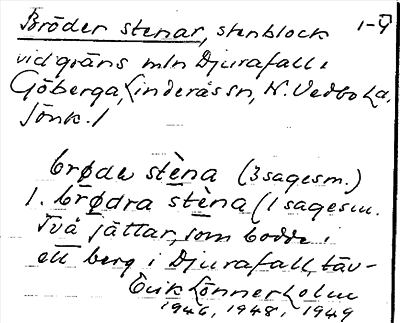 Bröder stenar, stenblock 1-4
vid gräns mln Djurafall i
Göberga, Linderås sn, N. Vedbo hd,
Jönk. l
brøde stèna (3 sagesm.)
1. brødra stèna (1 sagesm.
Två jättar, som bodde i
ett berg i Djurafall, täv-
Erik Lönnerholm
1946, 1948, 1949